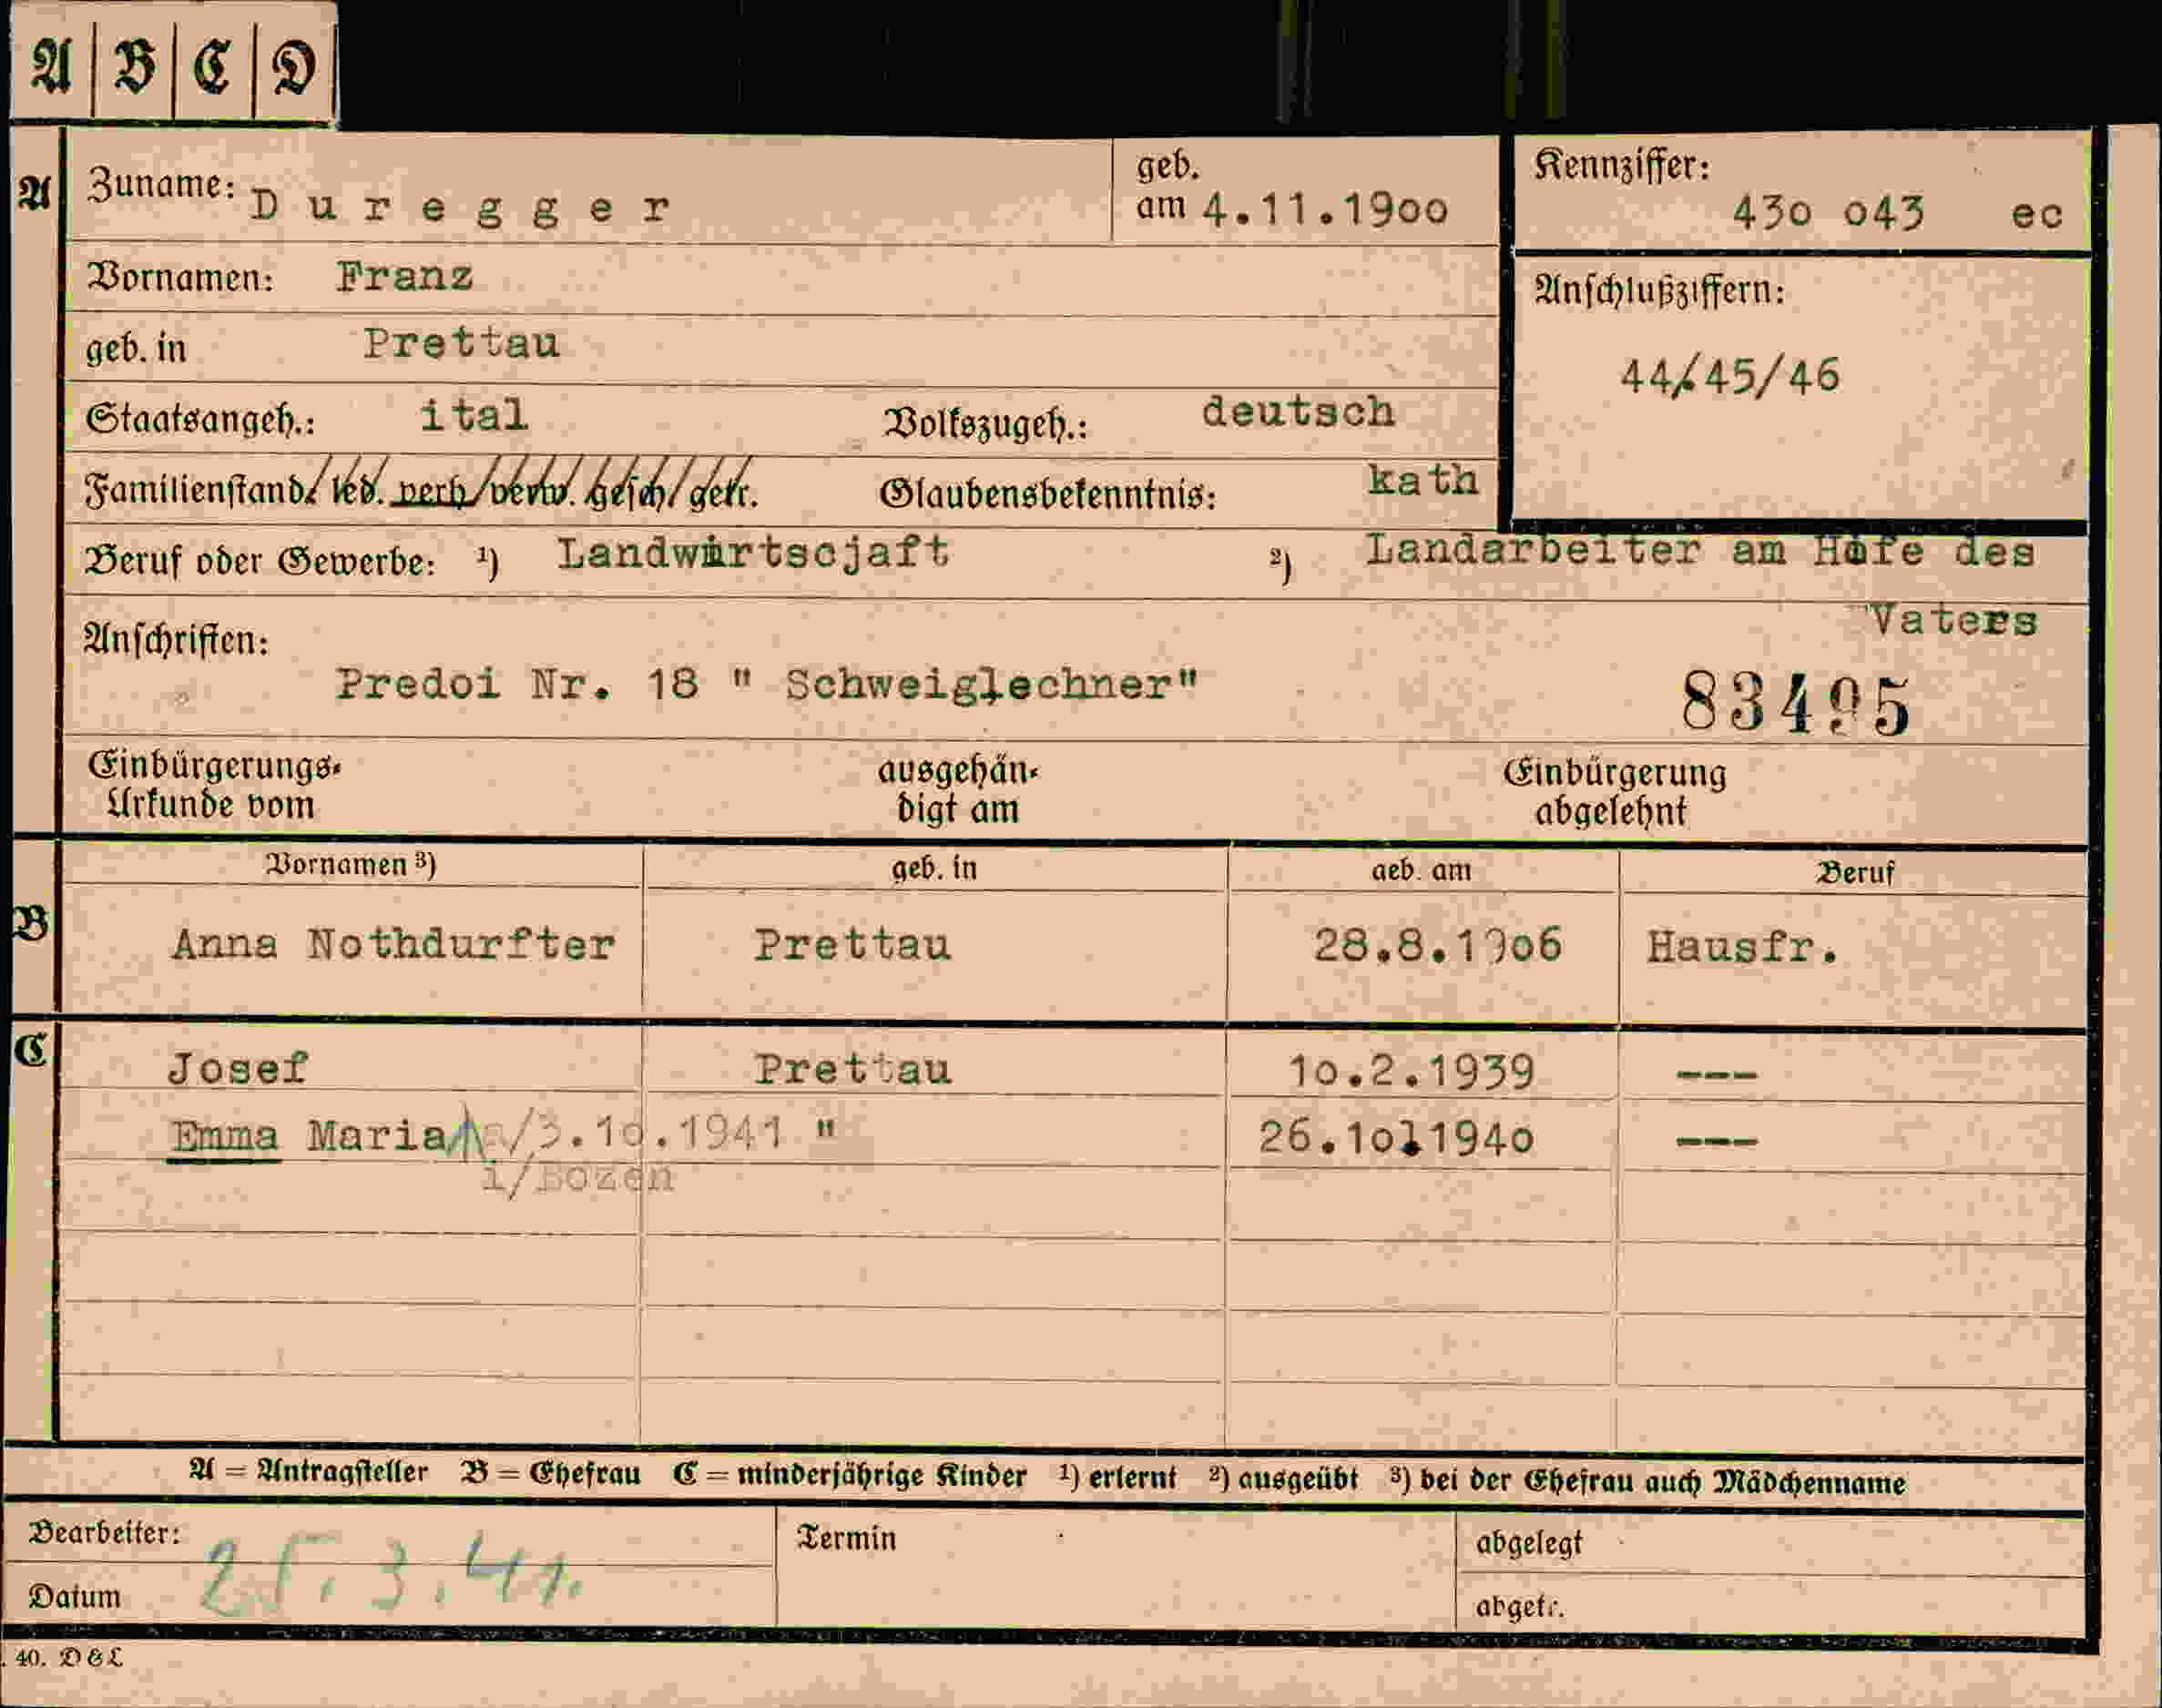 A B C D
A Zuname: Duregger geb. am 4.11.1900 Kennziffer: 430 043 ec
Vornamen: Franz
Anschlußziffern:
geb. in Prettau
44/45/46
Staatsangeh.: ital Volkszugeh.: deutsch
Familienstand: led. verh. verw. gesch. getr. Glaubensbekenntnis: kath
Beruf oder Gewerbe: 1) Landwirtscjaft 2) Landarbeiter am Hofe des
Vaters
Anschriften:
Predoi Nr. 18 " Schweiglechner" 83495
Einbürgerungs- ausgehän- Einbürgerung
Urkunde vom digt am abgelehnt
Vornamen 3) geb. in geb. am Beruf
B Anna Nothdurfter Prettau 28.8.1906 Hausfr.
C Josef Prettau 10.2.1939 ---
Emma Maria /3.10.1941 " 26.10.1940 ---
i/Bozen
A = Antragsteller B = Ehefrau C = minderjährige Kinder 1) erlernt 2) ausgeübt 3) bei der Ehefrau auch Mädchenname
Bearbeiter: Termin abgelegt
Datum 25.3.41. abgetr.
40. D&L